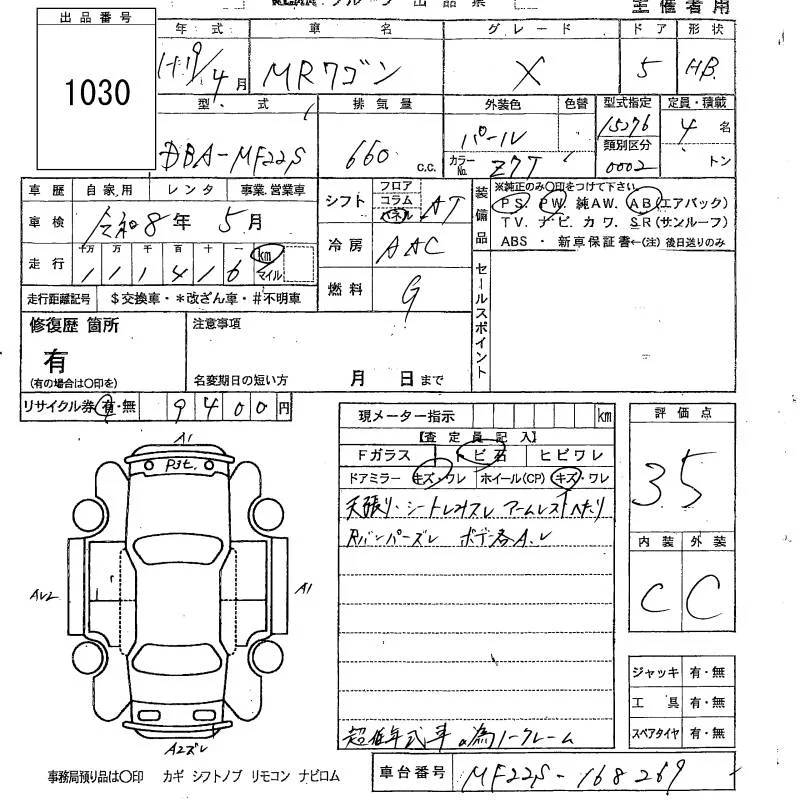 出品番号
1030
主催者用
年式 車名 グレード ドア 形状
H19/4月 MRワゴン X 5 HB
型式 排気量 外装色 色替 型式指定 定員・積載
DBA-MF22S 660 c.c. パール 15276 4名
カラーNo. Z7T 類別区分 0002 トン
車歴 自家用 レンタ 事業.営業車
車検 令和8年 5月
走行 十万 万 千 百 十 一 km マイル
111416
走行距離記号 $交換車・*改ざん車・#不明車
シフト フロア コラム パネル AT
冷房 AAC
燃料 G
装備品 ※純正のみ○印をつけて下さい
PS. PW. 純AW. AB(エアバック)
TV. ナビ. カワ. SR(サンルーフ)
ABS ・ 新車保証書←(注) 後日送りのみ
セールスポイント
修復歴 箇所
有
(有の場合は○印を)
注意事項
名変期日の短い方 月 日まで
リサイクル券 有・無 9400円
現メーター指示 km
【査定員記入】
Fガラス トビ石 ヒビワレ
ドアミラー キズ・ワレ ホイール(CP) キズ・ワレ
天張り・シートレスレ アームレストヘたり
Rバンパーズレ ボデー各A.U
超低年式車の為ノークレーム
評価点
3.5
内装 外装
C C
ジャッキ 有・無
工具 有・無
スペアタイヤ 有・無
A1
P3t.
AU2
A1
A2ズレ
事務局預り品は○印 カギ シフトノブ リモコン ナビロム
車台番号 MF22S-168269